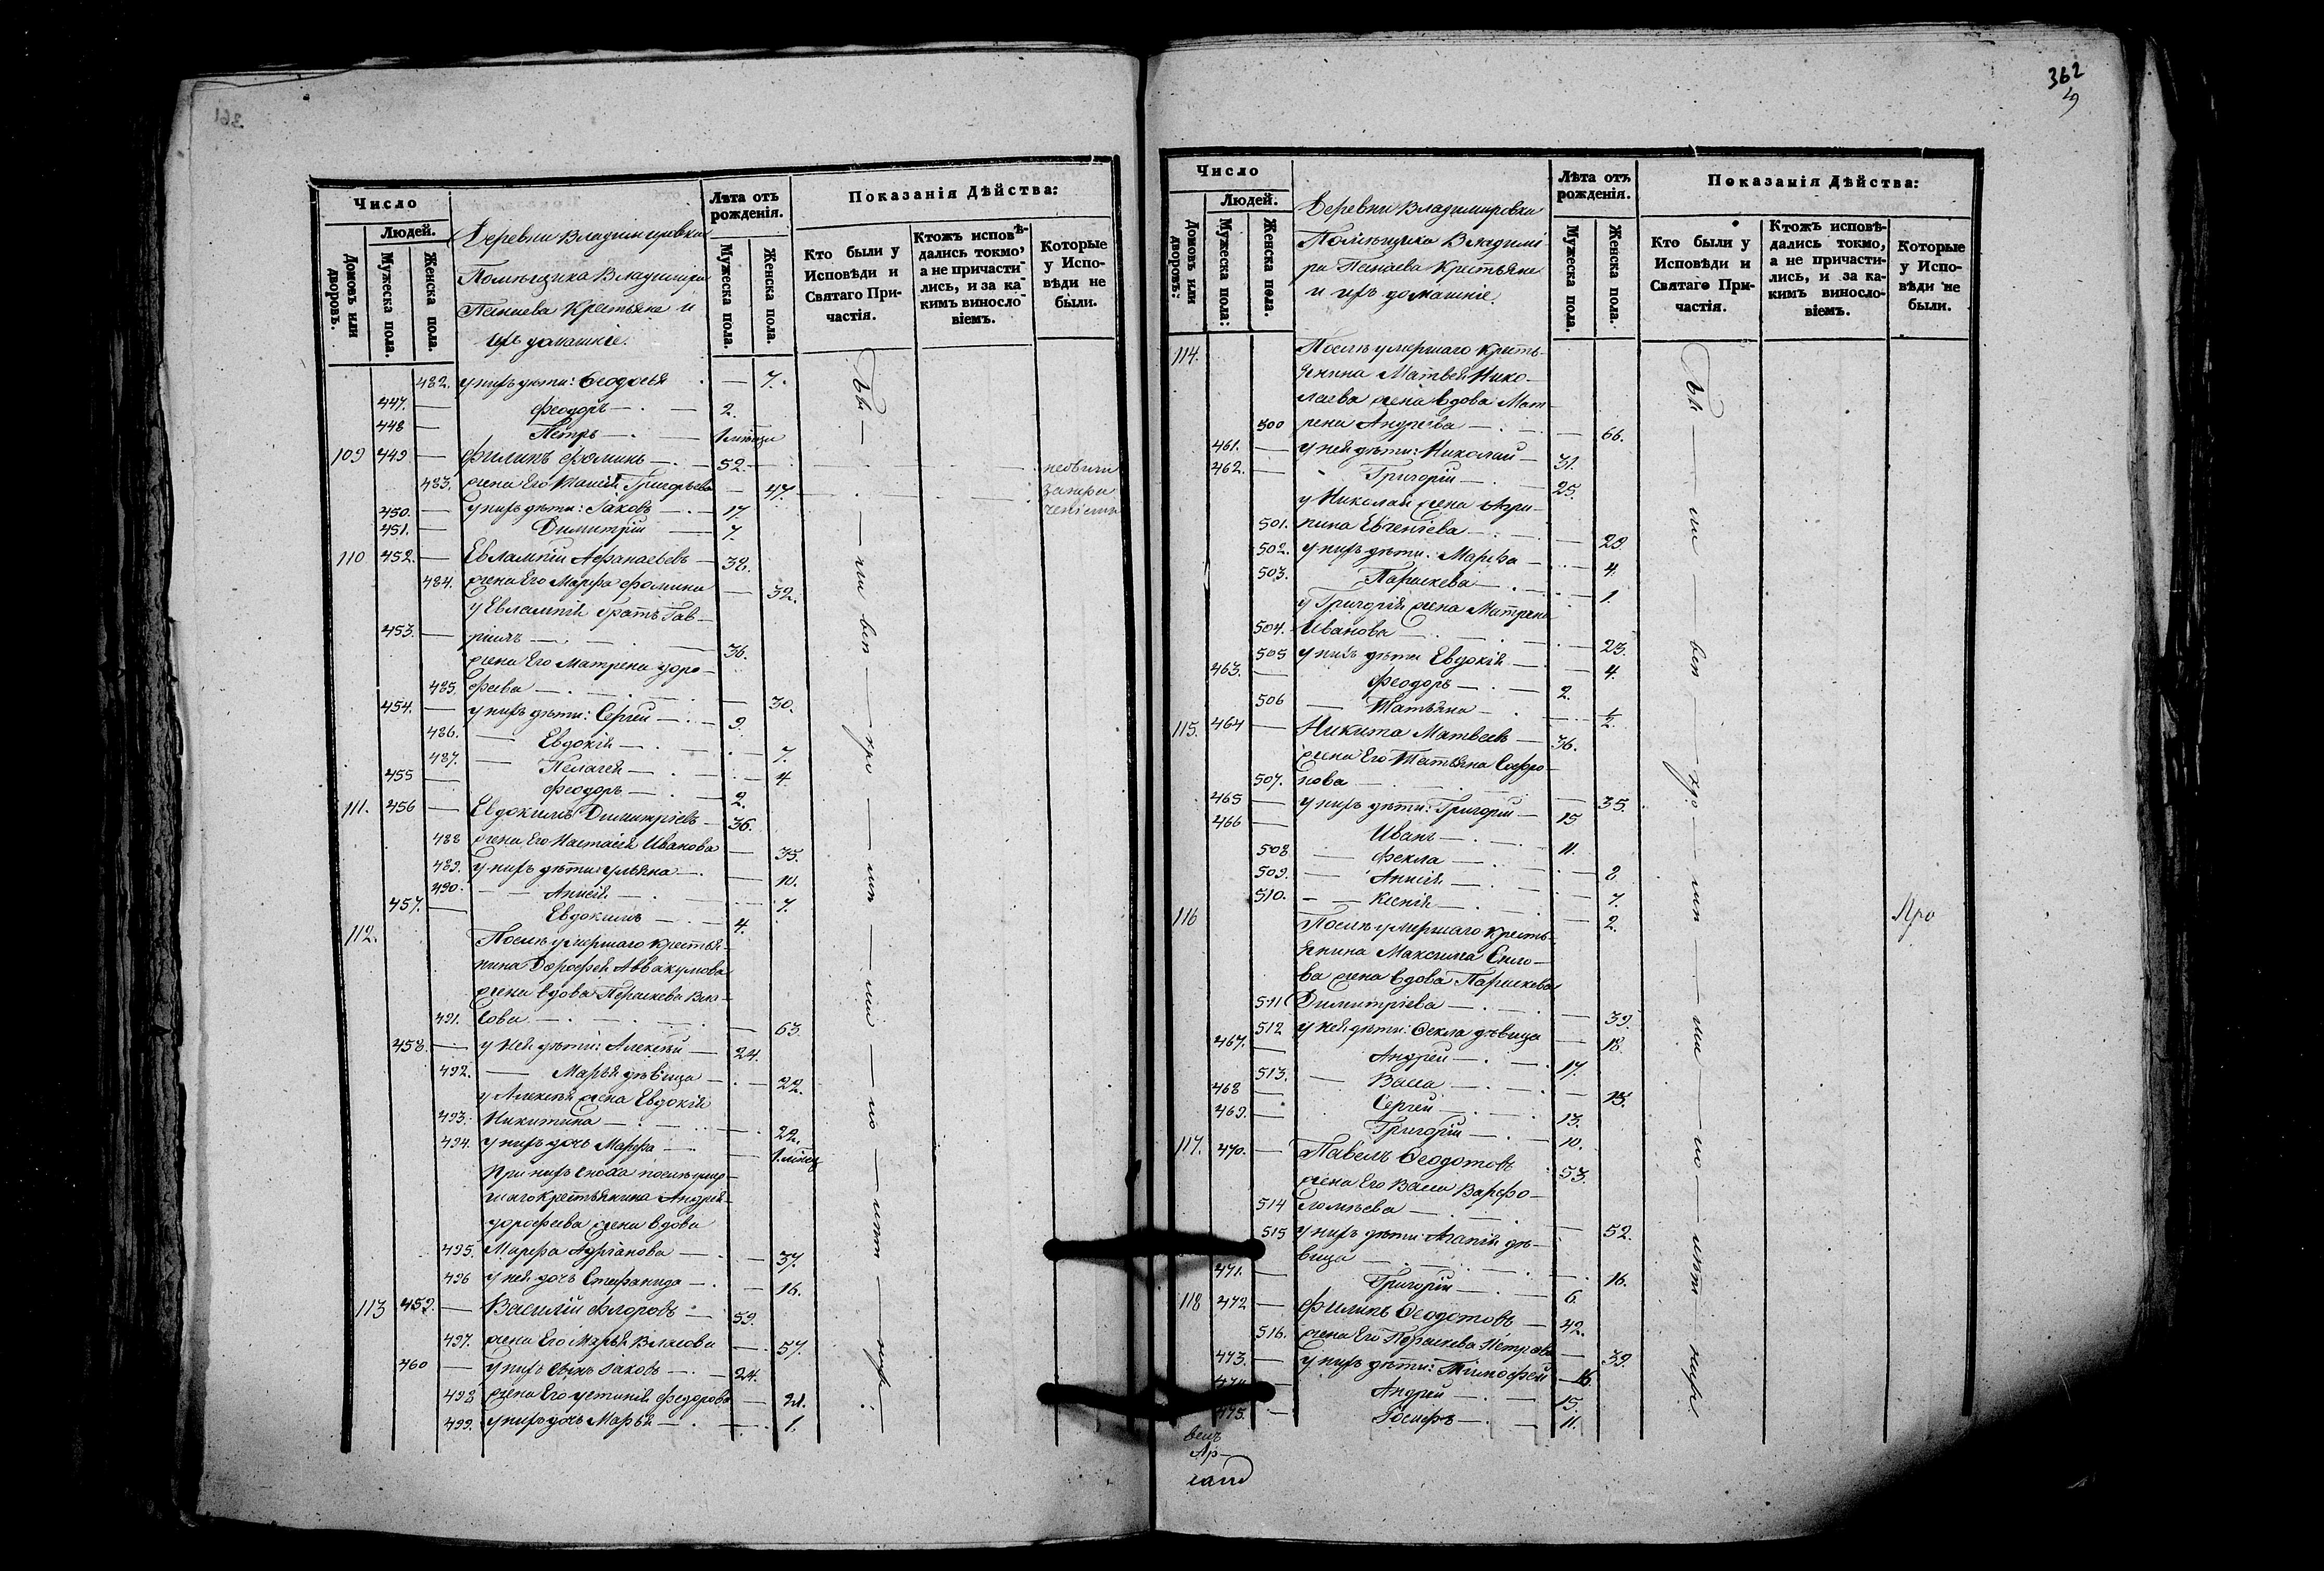 361
Число
Людей.
Домовъ или дворовъ.
Мужеска пола.
Женска пола.
Деревни Владимировки
Помѣщика Владиміра
Панаева Крестьяне и
ихъ домашніе.
Лѣта отъ рожденія.
Мужеска пола.
Женска пола.
Показанія Дѣйства:
Кто были у Исповѣди и Святаго Причастія.
Ктожъ исповѣдались токмо, а не причастились, и за какимъ винословіемъ.
Которые у Исповѣди не были.
482. у нихъ дѣти: Ѳеодосья — 7.
447. — Феодоръ — 2.
448 — Петръ — 1 мѣсяца
109 449 — Филипъ Фоминъ — 52.
483. жена Его Таисія Григорьева — 47.
небыли
450. — у нихъ дѣти: Іаковъ — 17.
451. — Димитрій — 7.
110 452. — Евлампій Афанасьевъ — 38.
484. жена Его Марфа Фомина — 32.
у Евлампія братъ Гав-
453. — ріилъ — 36.
жена Его Матрена Доро-
485. феева — 30.
454. — у нихъ дѣти: Сергей — 9.
486. — Евдокія — 7.
487. — Пелагея — 4.
455 — Феодоръ — 2.
111. 456 — Евдокимъ Димитріевъ — 36.
488 жена Его Настасія Иванова — 35.
489. у нихъ дѣти: Ульяна — 10.
490. — Анисія — 7.
457. — Евдокимъ — 4.
112. Послѣ умершаго крестья-
нина Дорофея Аввакумова
жена вдова Параскева Вла-
491. сова — 63.
458. — у ней дѣти: Алексѣй — 24.
492. — Марья дѣвица — 22.
у Алексѣя жена Евдокія
493. Никитина — 22.
494. у нихъ дочь Марфа — 1 мѣсяц
При нихъ сноха послѣ умер-
шаго крестьянина Андрея
Дорофеева жена вдова
495. Марфа Адріанова — 37.
496 у ней дочь Стефанида — 16.
113 459. — Василій Флоровъ — 59.
497. жена Его Марья Власова — 57.
460 — у нихъ сынъ Іаковъ — 24.
498 жена Его Устинія Федорова — 21.
499. у нихъ дочь Марья — 1.
Бы — ли вси — про
362
Число
Людей.
Домовъ или дворовъ:
Мужеска пола:
Женска пола.
Деревни Владимировки
Помѣщика Владимі
ра Панаева Крестьяне
и ихъ домашніе.
Лѣта отъ рожденія.
Мужеска пола.
Женска пола.
Показанія Дѣйства:
Кто были у Исповѣди и Святаго Причастія.
Ктожъ исповѣдались токмо, а не причастились, и за какимъ винословіемъ.
Которые у Исповѣди не были.
114. Послѣ умершаго кресть-
янина Матвея Нико-
лаева жена вдова Мат-
500 рена Андреева — 66.
461. — у ней дѣти: Николай — 31.
462. — Григорій — 25.
у Николая жена Агри-
501. пина Евгеніева — 29
502. у нихъ дѣти: Марфа — 4.
503. Параскева — 1.
у Григорія жена Матрена
504. Иванова — 23.
505 у нихъ дѣти Евдокія — 4.
463. — Феодоръ — 2.
506 — Татьяна — ½.
115. 464 — Никита Матвеевъ — 36.
жена Его Татьяна Софро-
507. нова — 35.
465 — у нихъ дѣти: Григорій — 15
466 — Иванъ — 11.
508 — Фекла — 8
509. — Анисія — 7.
510. — Ксенія — 2.
116 Послѣ умершаго кресть-
янина Максима Сило-
ва жена вдова Параскева
511 Димитріева — 39.
512 у ней дѣти: Ѳекла дѣвица — 18.
467. — Андрей — 17.
513. — Васса — 15.
468 — Сергей — 13.
469. — Григорій — 10.
117. 470. — Павелъ Ѳеодотовъ 53.
жена Его Васса Варфо-
514 ломѣева — 52.
515 у нихъ дѣти Агапія дѣ-
вица — 16.
471. — Григорій — 6.
118 472 — Филипъ Ѳеодотовъ — 42.
516. жена Его Параскева Петрова — 39.
473. — у нихъ дѣти: Тимофей — 16.
474 — Андрей — 15.
475. — Іосифъ — 11.
Бы — ли — вси — про
Про